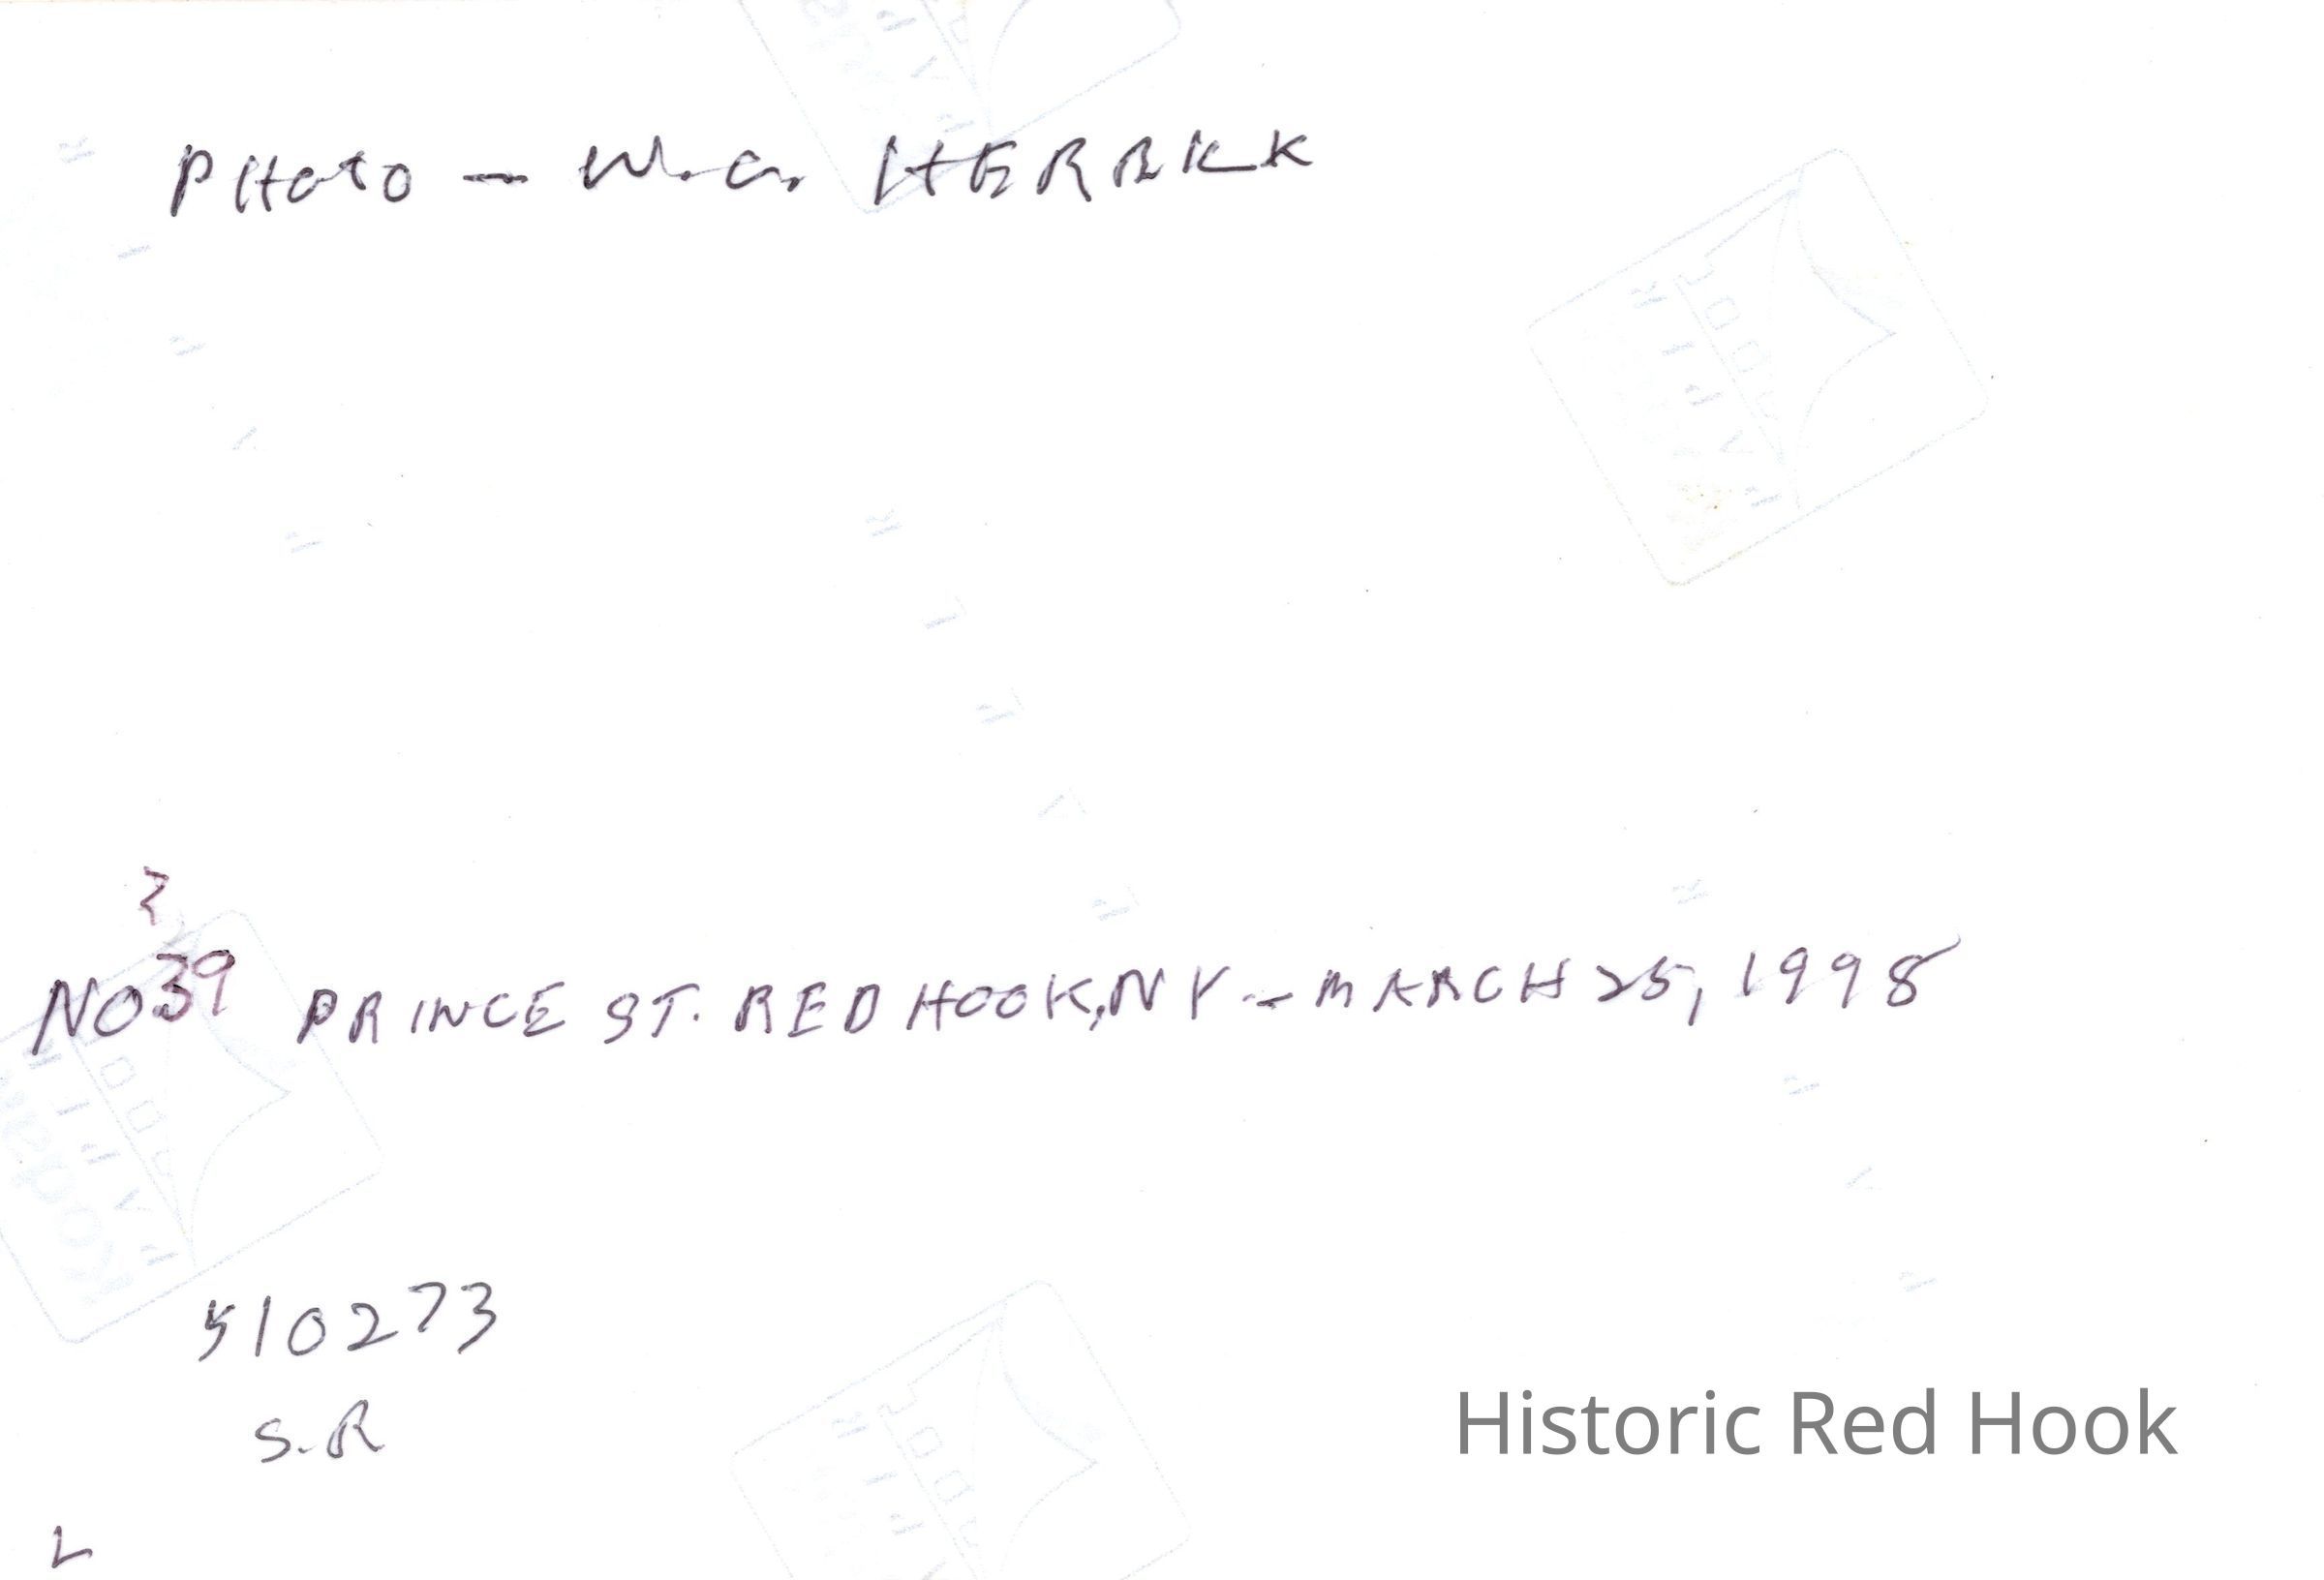 PHOTO - W.C. HERRICK
?
NO 39 PRINCE ST. RED HOOK, NY - MARCH 25, 1998
510273
S.R
L
Historic Red Hook